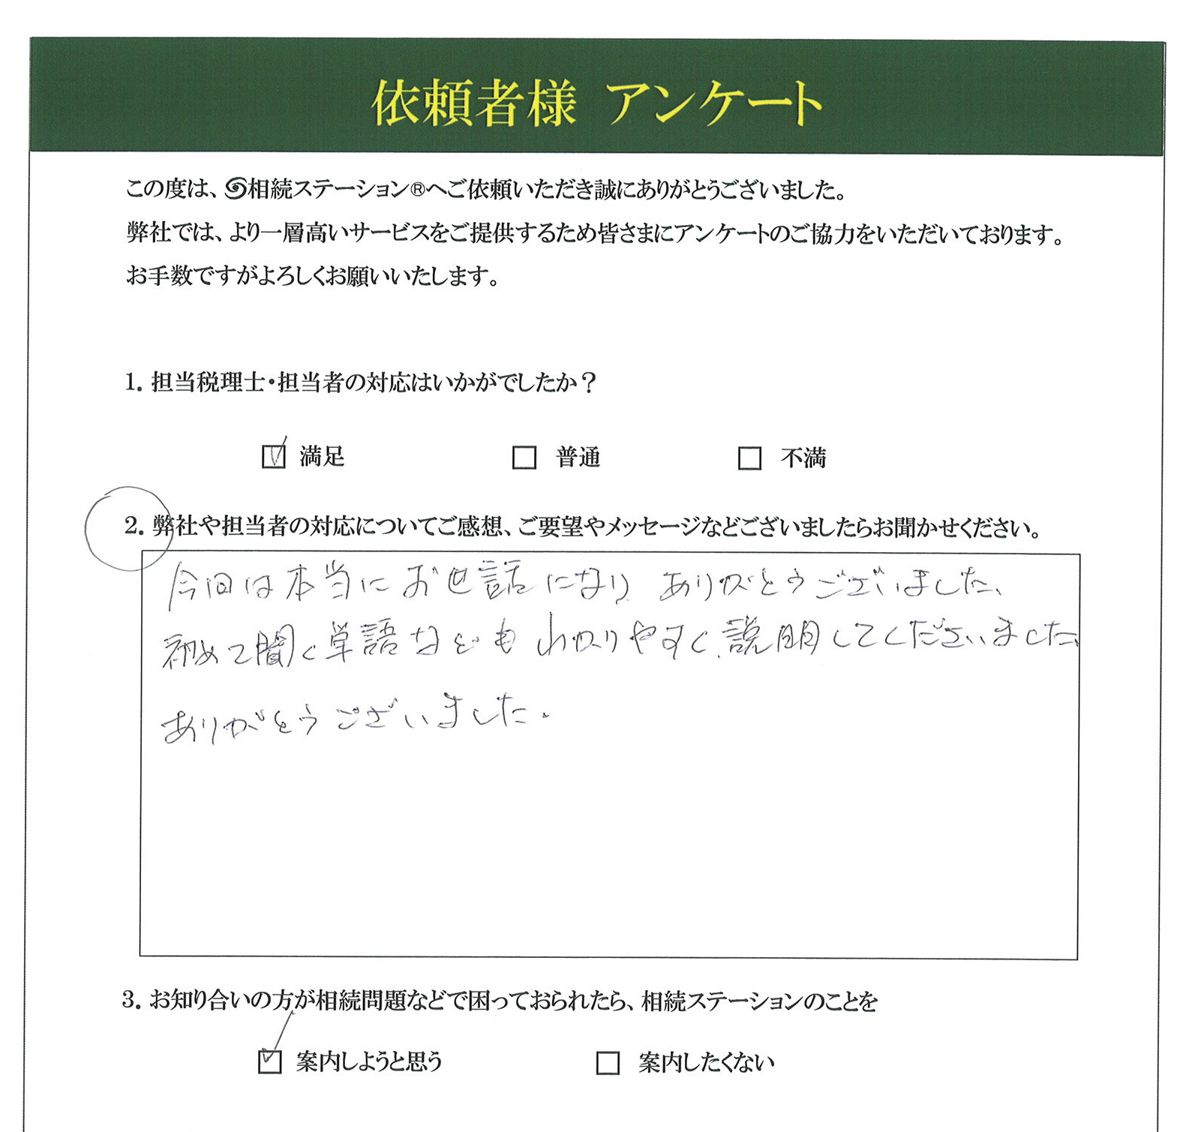 依頼者様 アンケート
この度は、相続ステーション®へご依頼いただき誠にありがとうございました。
弊社では、より一層高いサービスをご提供するため皆さまにアンケートのご協力をいただいております。
お手数ですがよろしくお願いいたします。
1. 担当税理士・担当者の対応はいかがでしたか？
☑ 満足 □ 普通 □ 不満
2. 弊社や担当者の対応についてご感想、ご要望やメッセージなどございましたらお聞かせください。
今回は本当にお世話になり ありがとうございました、
初めて聞く単語などもわかりやすく、説明してくださいました、
ありがとうございました。
3. お知り合いの方が相続問題などで困っておられたら、相続ステーションのことを
☑ 案内しようと思う □ 案内したくない